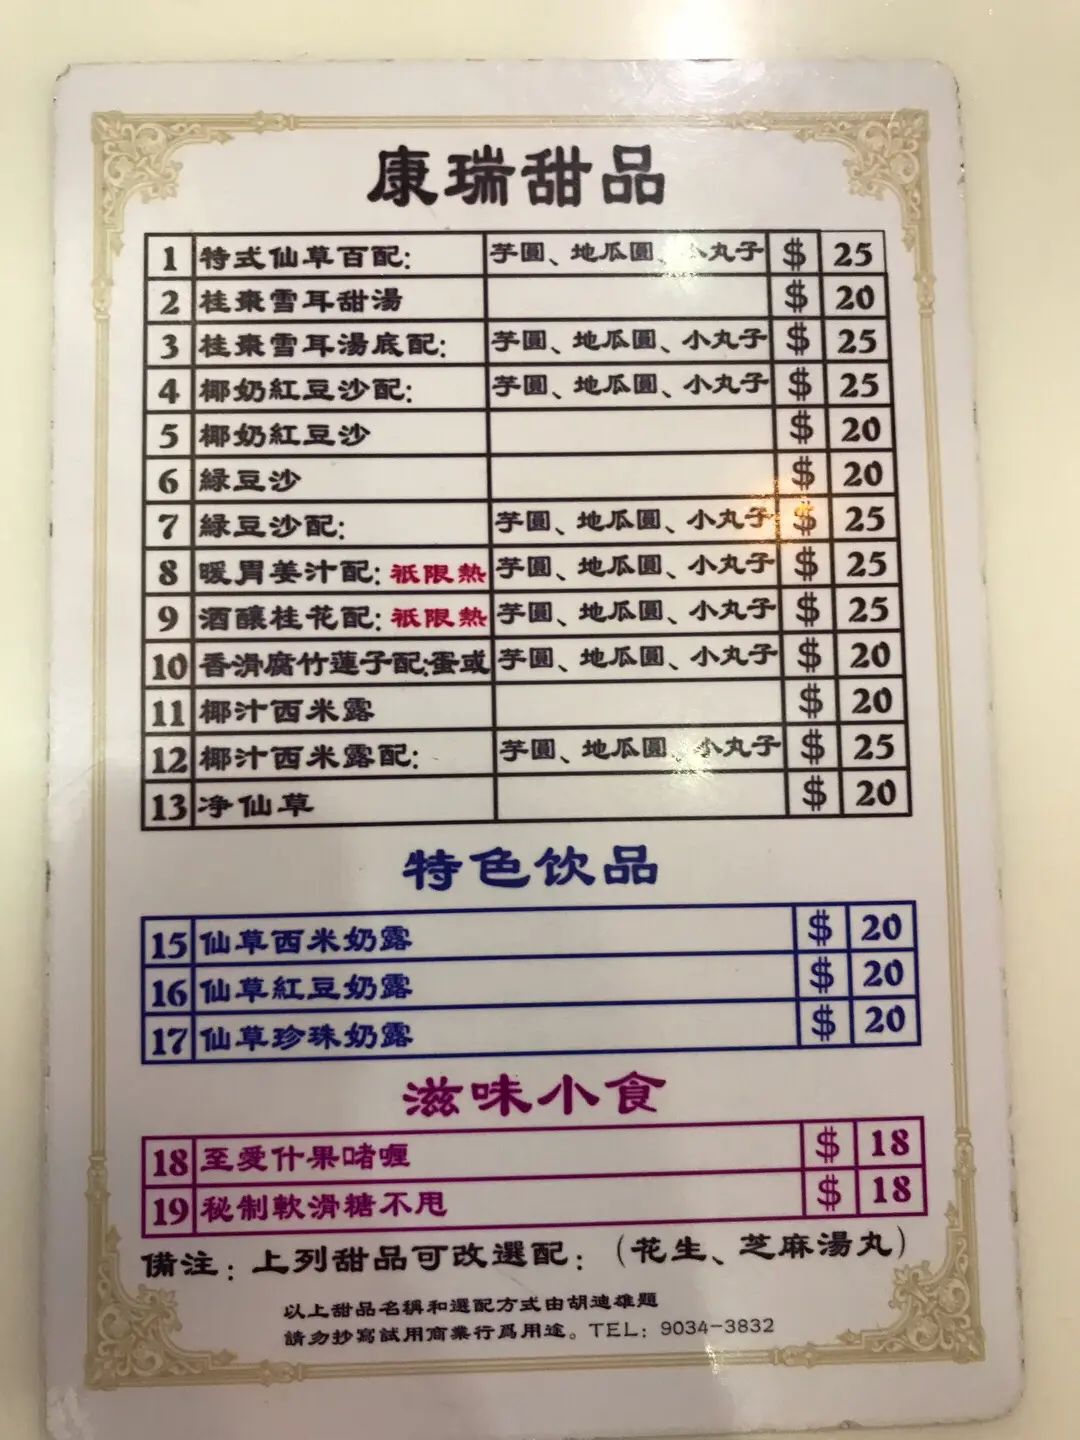 康瑞甜品
1 特式仙草百配: 芋圓、地瓜圓、小丸子 $ 25
2 桂棗雪耳甜湯 $ 20
3 桂棗雪耳湯底配: 芋圓、地瓜圓、小丸子 $ 25
4 椰奶紅豆沙配: 芋圓、地瓜圓、小丸子 $ 25
5 椰奶紅豆沙 $ 20
6 綠豆沙 $ 20
7 綠豆沙配: 芋圓、地瓜圓、小丸子 $ 25
8 暖胃姜汁配: 祇限熱 芋圓、地瓜圓、小丸子 $ 25
9 酒釀桂花配: 祇限熱 芋圓、地瓜圓、小丸子 $ 25
10 香滑腐竹蓮子配:蛋或 芋圓、地瓜圓、小丸子 $ 20
11 椰汁西米露 $ 20
12 椰汁西米露配: 芋圓、地瓜圓、小丸子 $ 25
13 净仙草 $ 20
特色饮品
15 仙草西米奶露 $ 20
16 仙草紅豆奶露 $ 20
17 仙草珍珠奶露 $ 20
滋味小食
18 至愛什果啫喱 $ 18
19 秘制軟滑糖不甩 $ 18
備注：上列甜品可改選配：（花生、芝麻湯丸）
以上甜品名稱和選配方式由胡迪雄題
請勿抄寫試用商業行爲用途。TEL: 9034-3832